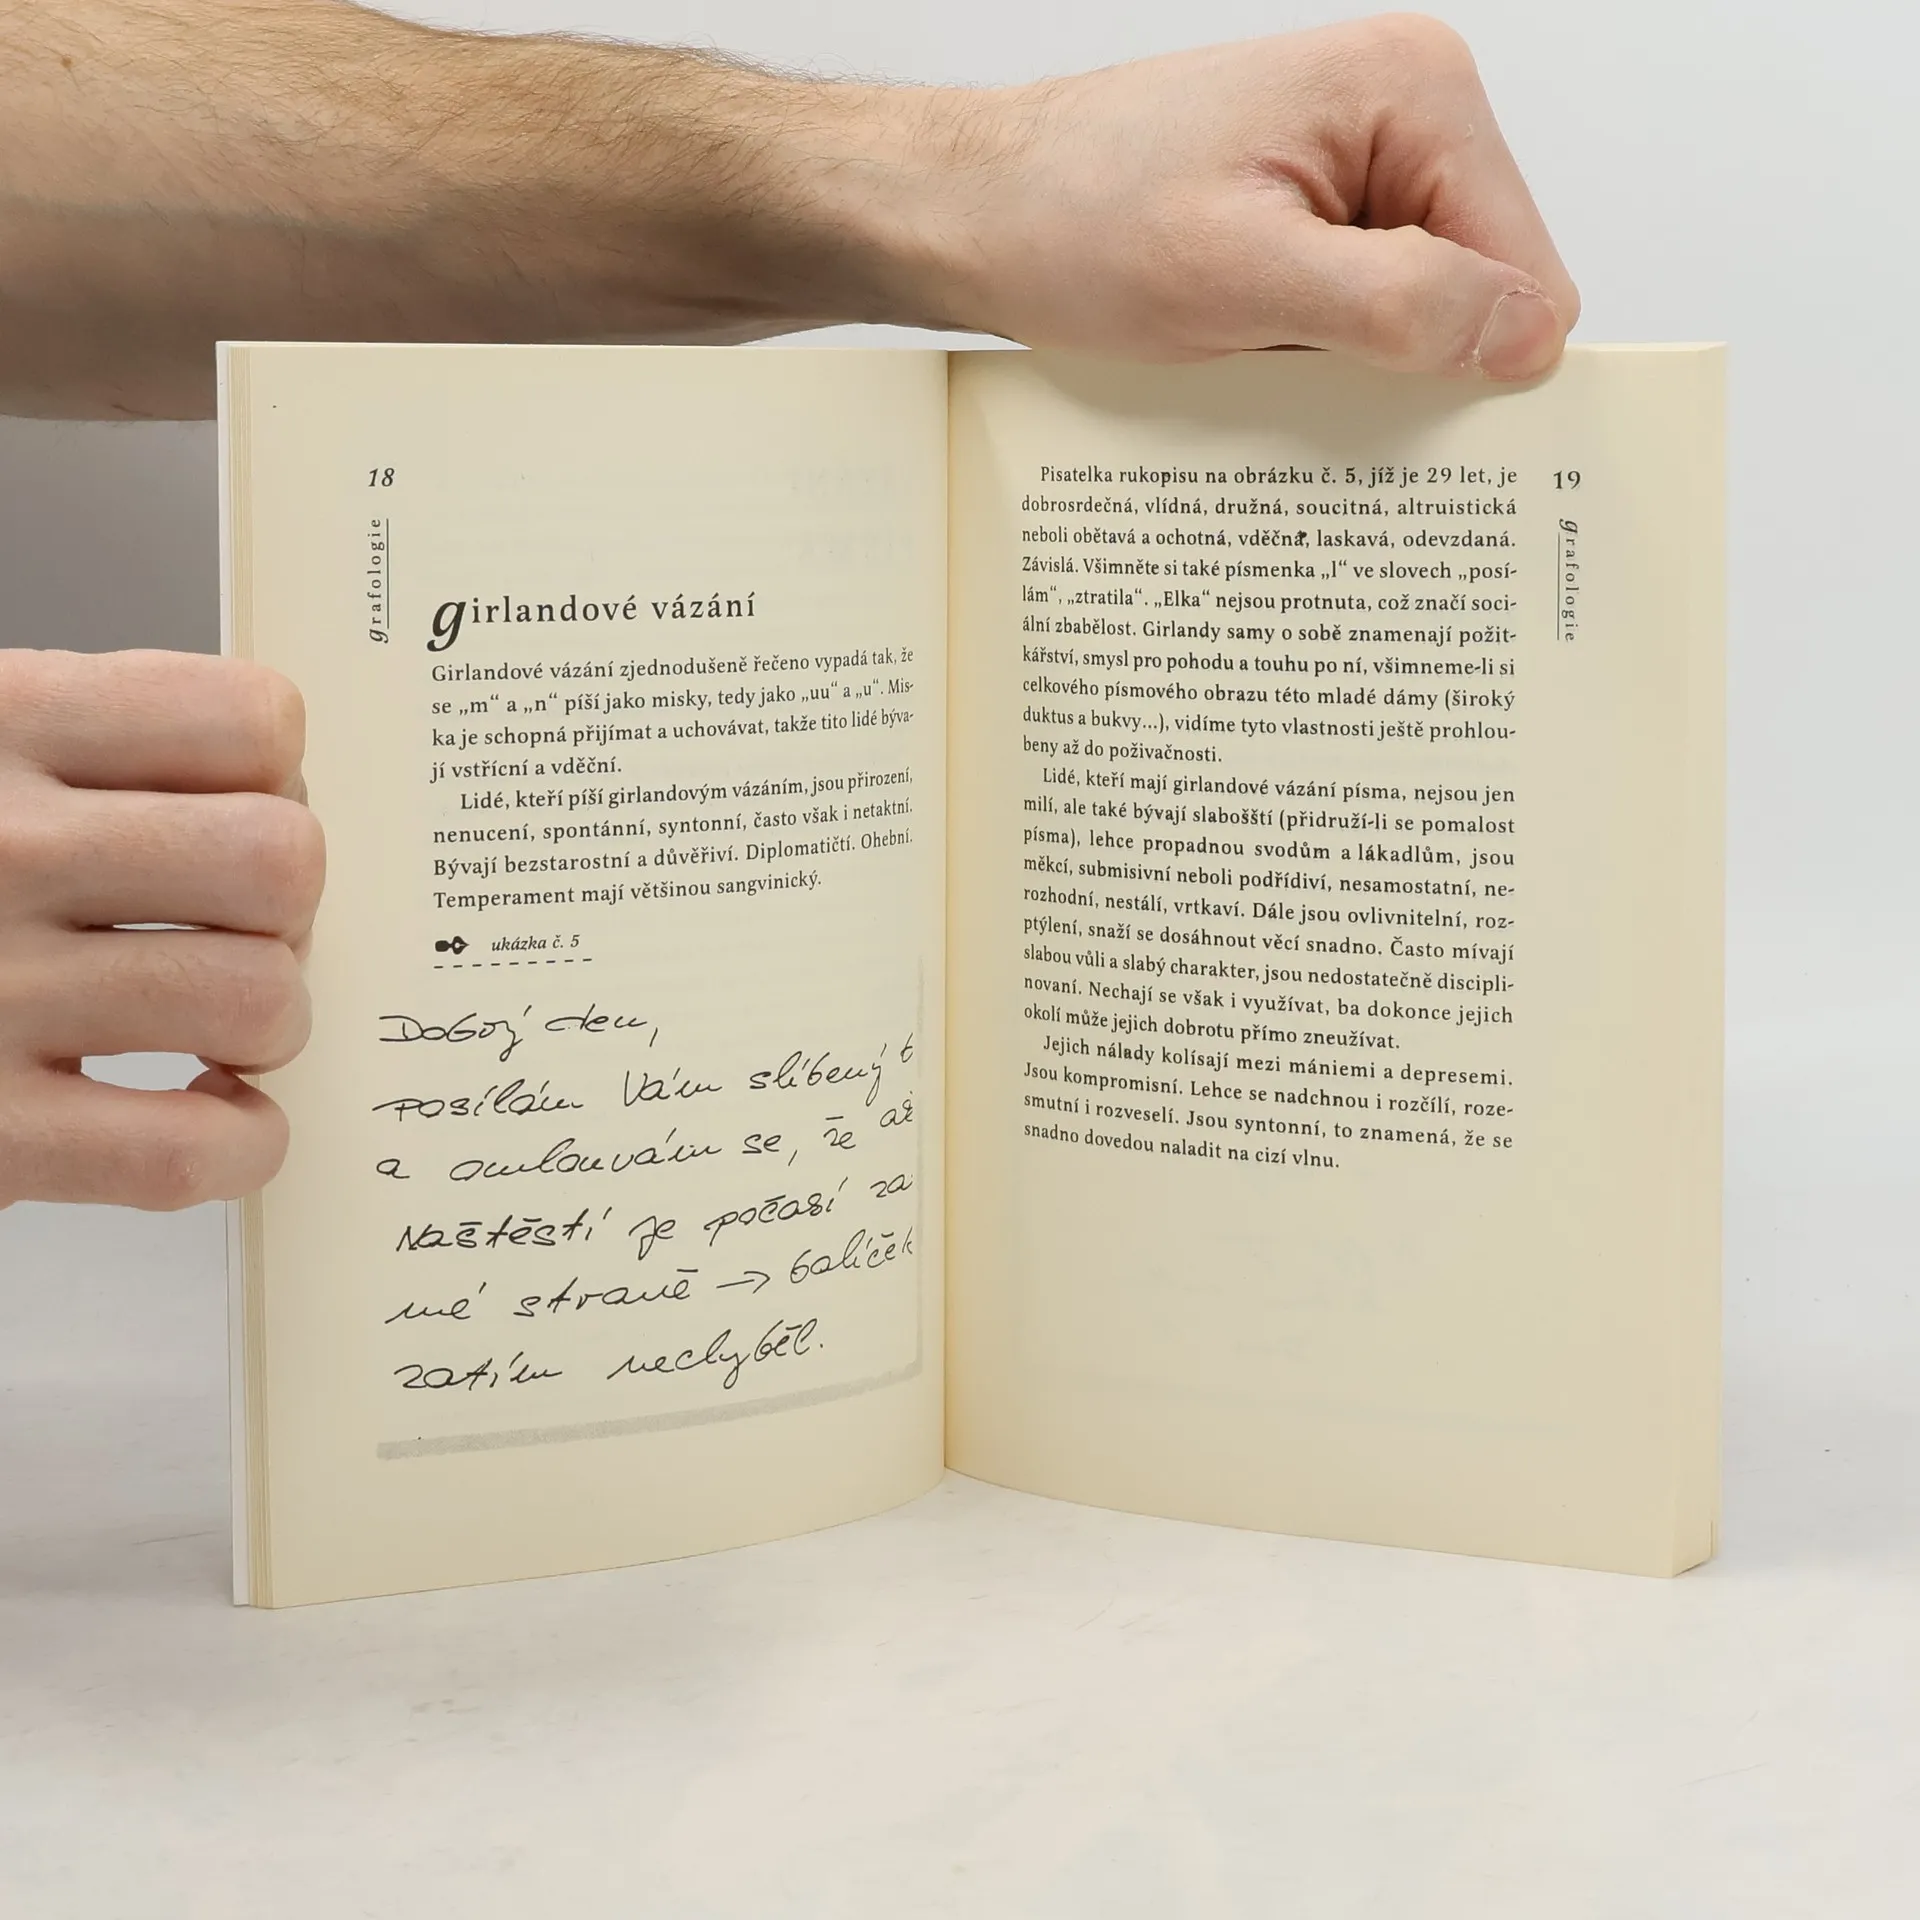 18
grafologie
girlandové vázání
Girlandové vázání zjednodušeně řečeno vypadá tak, že
se „m“ a „n“ píší jako misky, tedy jako „uu“ a „u“. Mis-
ka je schopná přijímat a uchovávat, takže tito lidé býva-
jí vstřícní a vděční.
Lidé, kteří píší girlandovým vázáním, jsou přirození,
nenucení, spontánní, syntonní, často však i netaktní.
Bývají bezstarostní a důvěřiví. Diplomatičtí. Ohební.
Temperament mají většinou sangvinický.
ukázka č. 5
Dobrý den,
posílám Vám slíbený
a omlouvám se, že
Naštěstí je počasí
mé straně → balíček
zatím nechyběl.
19
grafologie
Pisatelka rukopisu na obrázku č. 5, jíž je 29 let, je
dobrosrdečná, vlídná, družná, soucitná, altruistická
neboli obětavá a ochotná, vděčná, laskavá, odevzdaná.
Závislá. Všimněte si také písmenka „l“ ve slovech „posí-
lám“, „ztratila“. „Elka“ nejsou protnuta, což značí soci-
ální zbabělost. Girlandy samy o sobě znamenají požit-
kářství, smysl pro pohodu a touhu po ní, všimneme-li si
celkového písmového obrazu této mladé dámy (široký
duktus a bukvy...), vidíme tyto vlastnosti ještě prohlou-
beny až do poživačnosti.
Lidé, kteří mají girlandové vázání písma, nejsou jen
milí, ale také bývají slabošští (přidruží-li se pomalost
písma), lehce propadnou svodům a lákadlům, jsou
měkcí, submisivní neboli podřídiví, nesamostatní, ne-
rozhodní, nestálí, vrtkaví. Dále jsou ovlivnitelní, roz-
ptýlení, snaží se dosáhnout věcí snadno. Často mívají
slabou vůli a slabý charakter, jsou nedostatečně discipli-
novaní. Nechají se však i využívat, ba dokonce jejich
okolí může jejich dobrotu přímo zneužívat.
Jejich nálady kolísají mezi mániemi a depresemi.
Jsou kompromisní. Lehce se nadchnou i rozčílí, roze-
smutní i rozveselí. Jsou syntonní, to znamená, že se
snadno dovedou naladit na cizí vlnu.